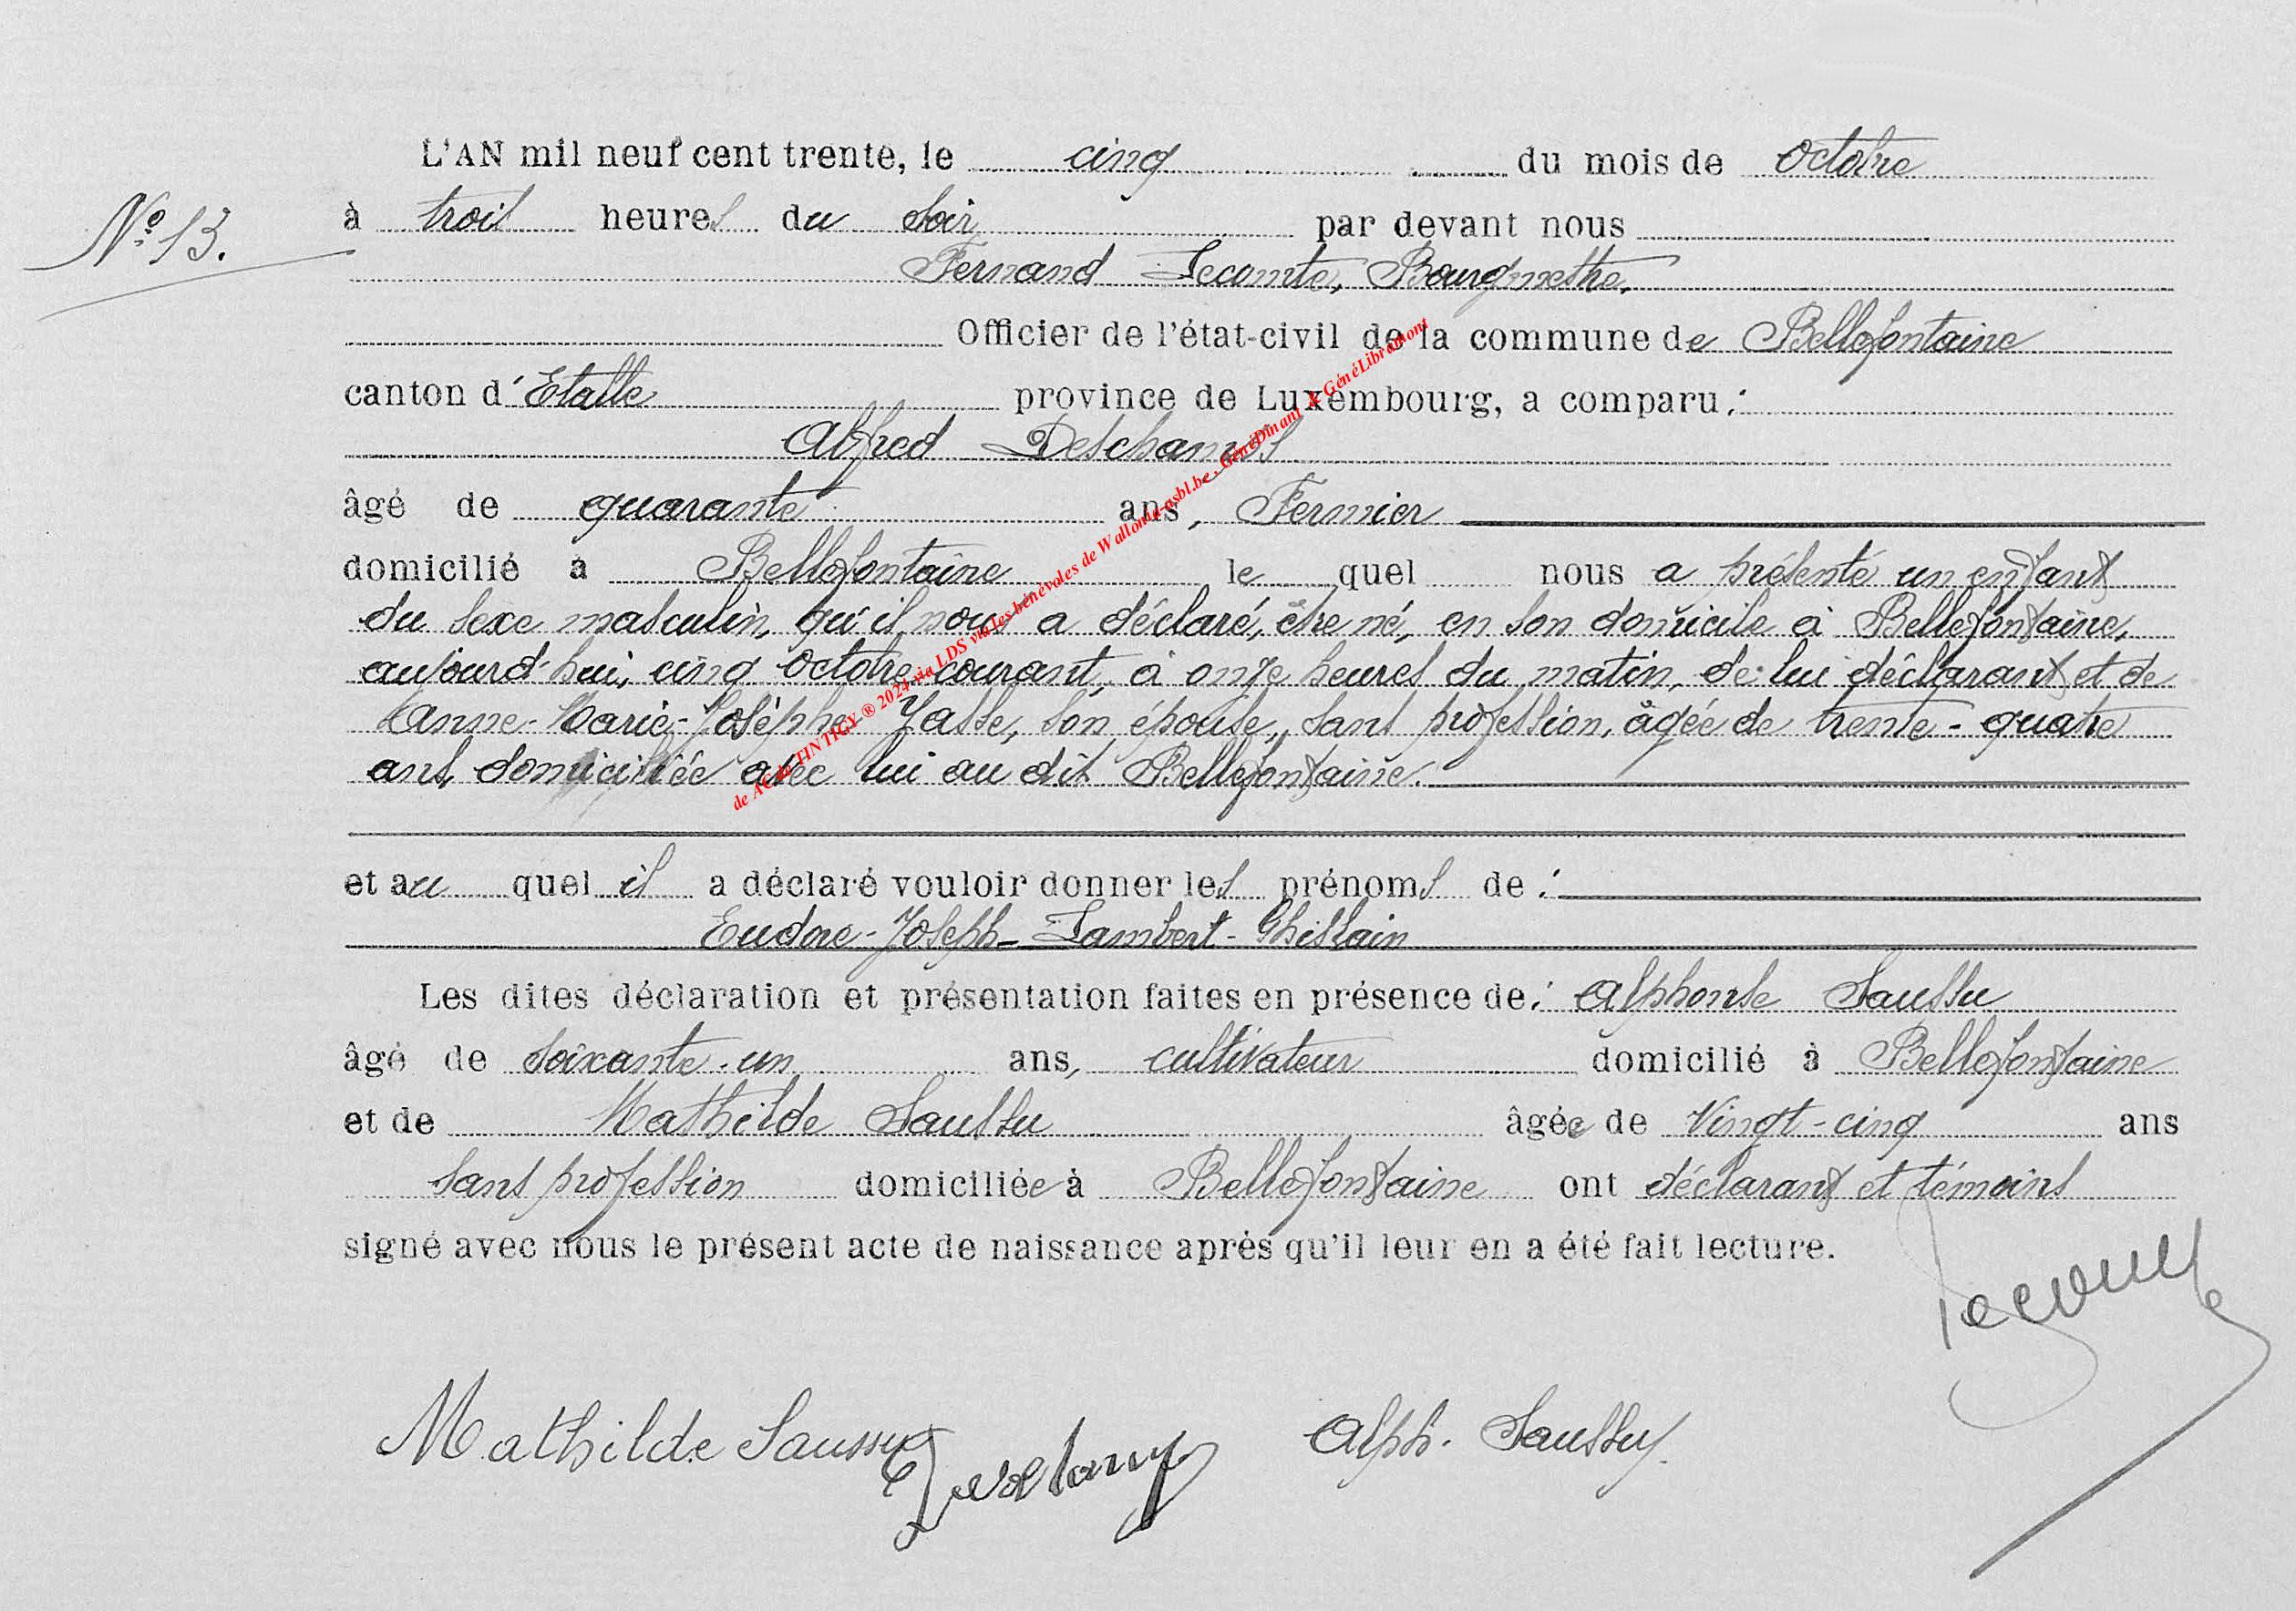 L'AN mil neuf cent trente, le cinq du mois de Octobre
N° 13.
à trois heures du soir par devant nous
Fernand Lecomte, Bourgmestre,
Officier de l'état-civil de la commune de Bellefontaine
canton d'Etalle province de Luxembourg, a comparu :
Alfred Deschamps
âgé de quarante ans, Fermier
domicilié à Bellefontaine le quel nous a présenté un enfant
du sexe masculin, qu'il nous a déclaré, être né, en son domicile à Bellefontaine,
aujourd'hui, cinq Octobre courant, à onze heures du matin, de lui déclarant et de
Anne-Marie-Josèphe Jasse, son épouse, sans profession, âgée de trente-quatre
ans, domiciliée avec lui au dit Bellefontaine.
et au quel il a déclaré vouloir donner les prénoms de :
Eudore-Joseph-Lambert-Ghislain
Les dites déclaration et présentation faites en présence de : Alphonse Saussu
âgé de soixante-un ans, cultivateur domicilié à Bellefontaine
et de Mathilde Saussu âgée de Vingt-cinq ans
sans profession domiciliée à Bellefontaine ont déclarant et témoins
signé avec nous le présent acte de naissance après qu'il leur en a été fait lecture.
Mathilde Saussu Alph. Saussu.
de AC de TINTIGY ® 2024 via LDS via les bénévoles de Wallonia-asbl.be - GénéDinant & GénéLibramont